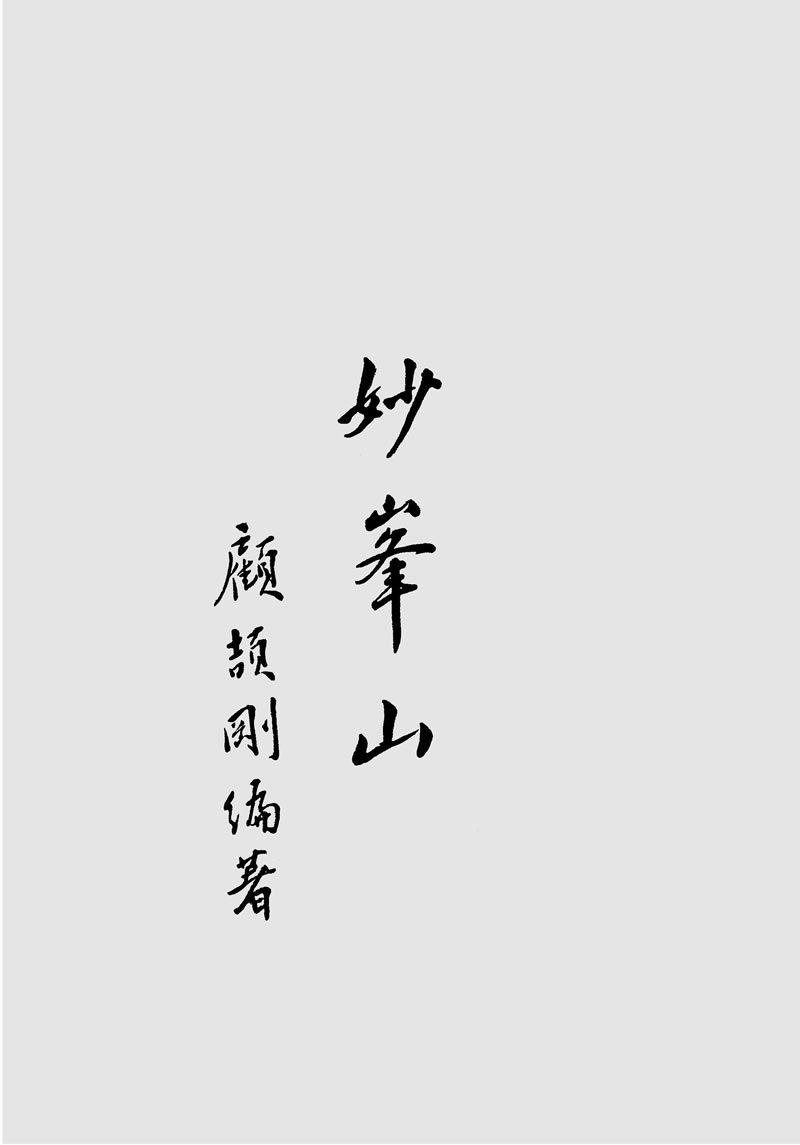 妙峯山
顧頡剛編著